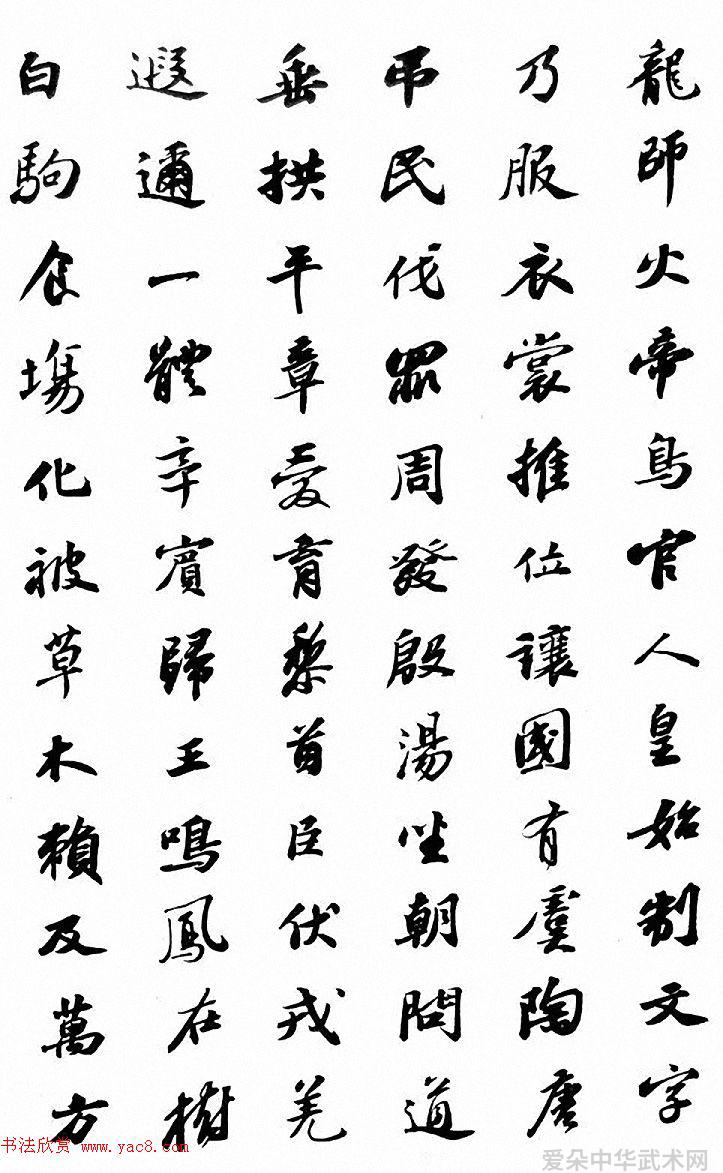 龍師火帝鳥官人皇始制文字
乃服衣裳推位讓國有虞陶唐
吊民伐罪周發殷湯坐朝問道
垂拱平章愛育黎首臣伏戎羌
遐邇一體辛賓歸王鳴鳳在樹
白駒食塲化被草木賴及萬方
书法欣赏 www.yac8.com
爱朵中华武术网